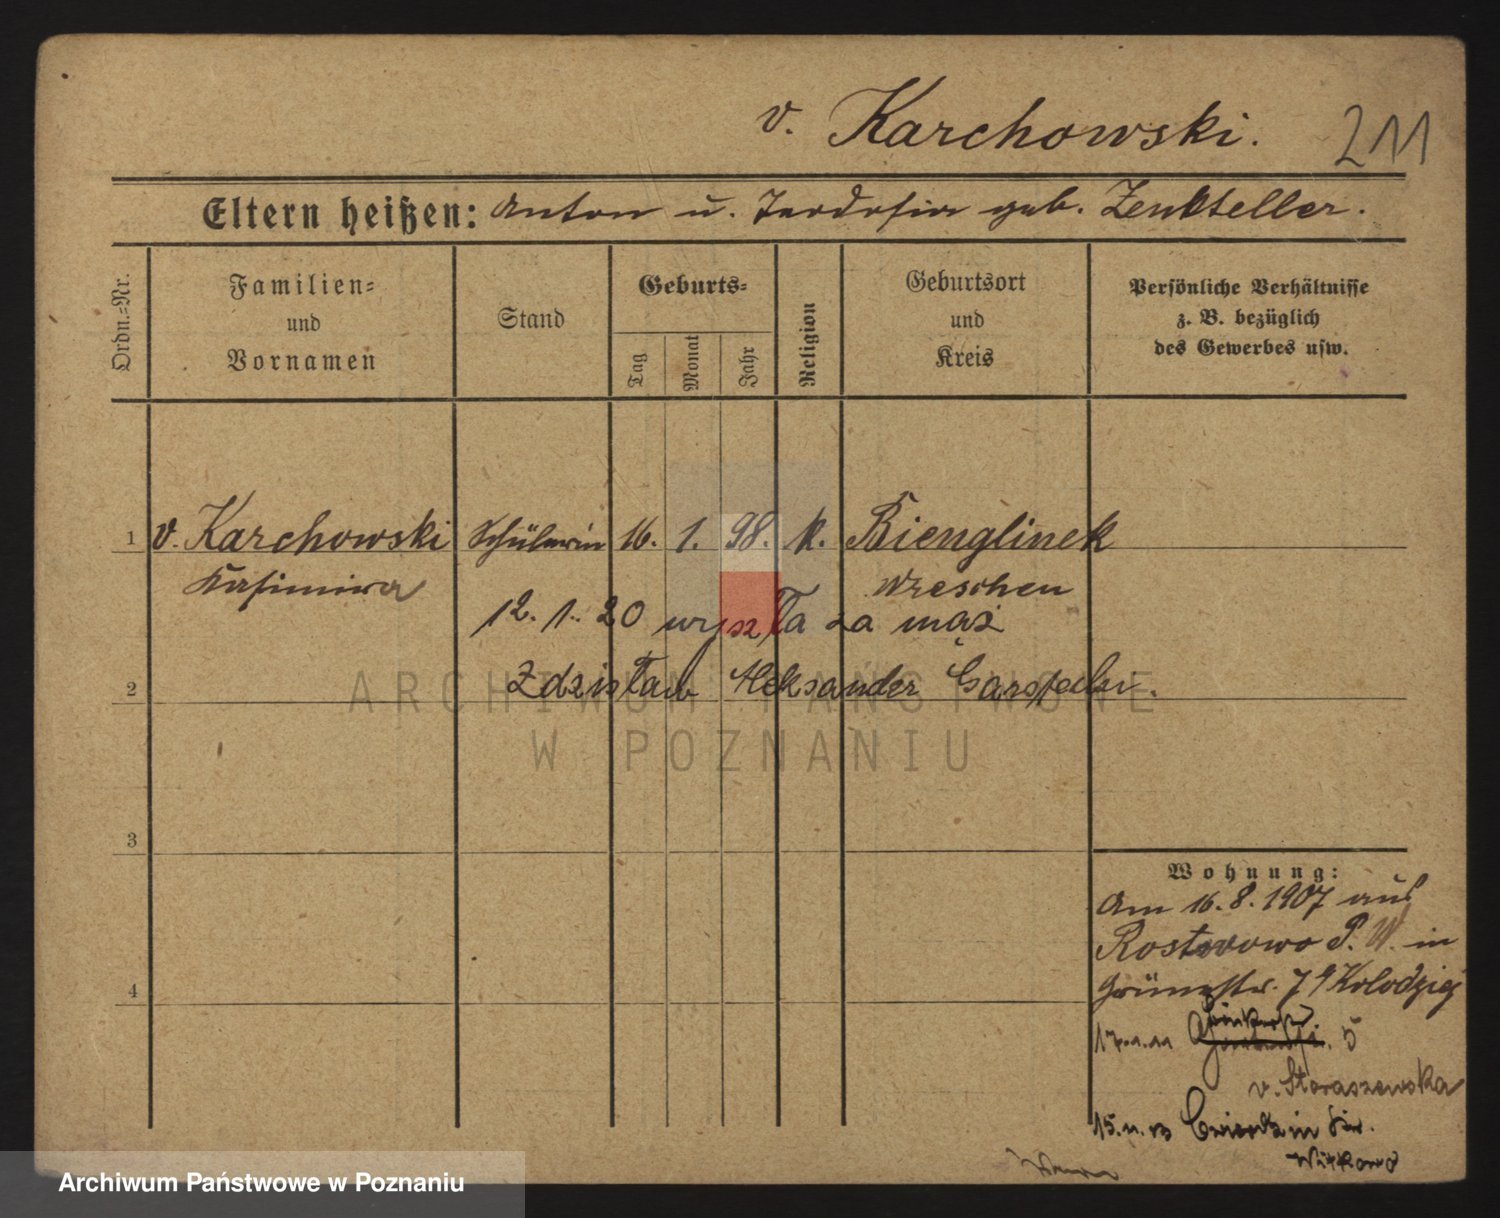 v. Karchowski. 211
Eltern heißen: Anton u. Teodosia geb. Zenkteller.
Ordn.-Nr.
Familien=
und
Vornamen
Stand
Geburts=
Tag
Monat
Jahr
Religion
Geburtsort
und
Kreis
Persönliche Verhältnisse
z. B. bezüglich
des Gewerbes usw.
1 v. Karchowski Schülerin 16. 1. 98. k. Bienglinek
Kasimira Wreschen
12. 1. 20 wyszła za mąż
Zdzisław Aleksander
2
3
4
Wohnung:
Am 16.8.1907 aus
P. W. in
Grünestr. 7 Kolodziej
17.1.11 5
v. Staraszewska
15.11.13 in Kr.
Witkowo
ARCHIWUM PAŃSTWOWE
W POZNANIU
Archiwum Państwowe w Poznaniu